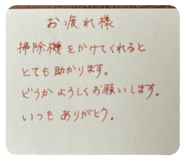 お疲れ様
掃除機をかけてくれると
とても助かります。
どうかよろしくお願いします。
いつもありがとう。